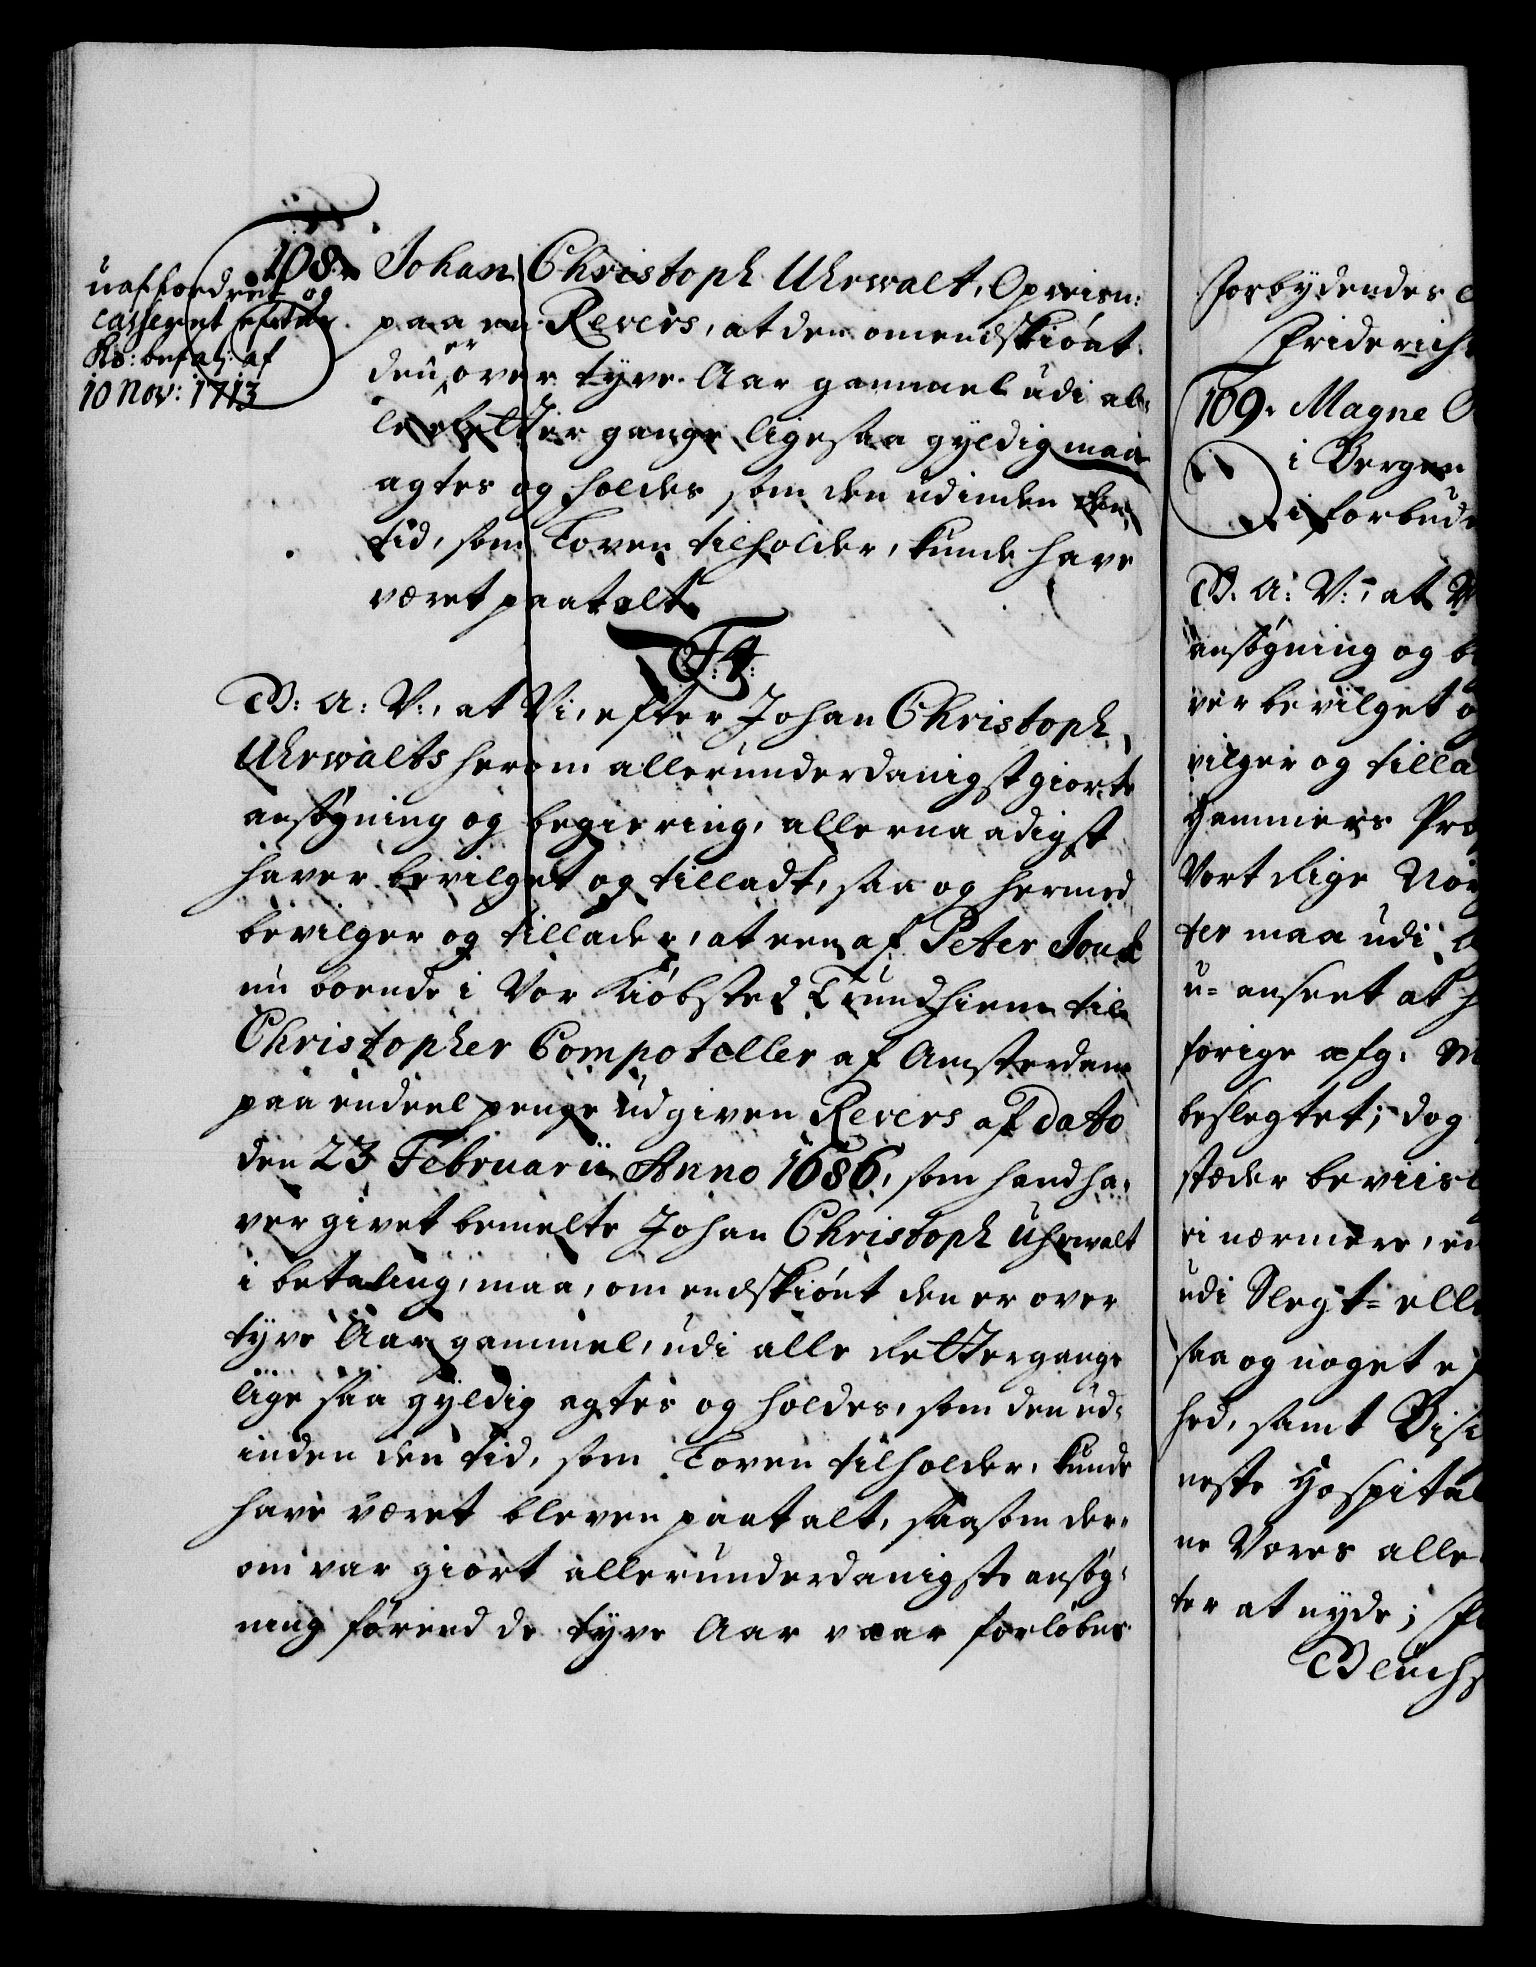 uaffordret og
casseret efter
Ks: befal: af
10 Nov: 1713
108. Johan Christoph Uhrwalt, Opreisn:
paa en Revers, at den omendskiönt
den er over tyve Aar gammel udi al-
le Rettergange ligesaa gyldig maa
agtes og holdes som den udinden den
tid, som Loven tilholder, kunde have
været paatalt.
F: 4:
G: A: V:, at Vi, efter Johan Christoph
Uhrwalts herom allerunderdanigst giorte
ansögning og begiering, allernaadigst
haver bevilget og tilladt, saa og hermed
bevilger og tillader, at een af Peter
nu boende i Vor Kiöbsted Trundhiem til
Christopher Compoteller af Amsterdam
paa endeel penge udgiven Revers af dato
den 23 Februarii Anno 1686, som hand ha-
ver givet bemelte Johan Christoph Uhrwalt
i betaling, maa, omendskiönt den er over
tyve Aar gammel, udi alle Rettergange
lige saa gyldig agtes og holdes, som den ud-
inden den tid, som Loven tilholder, kunde
have været bleven paatalt, saasom der-
om var giort allerunderdanigste ansög-
ning förend de tyve Aar vaar forlöbne
Forbydendes
Friderichs
109. Magne
i Bergen
i forbudne
G: A: V:, at
ansögning og
ver bevilget og
vilger og tilla
Hammers Præ
Vort Rige Nor
ter maa udi
u-anseet at
forige afg:
beslegtet; dog
stæder beviis
ei nærmere, en
udi Slegt- elle
saa og noget
hed, samt
neste Hospital
ne Vores alle
ter at nyde;